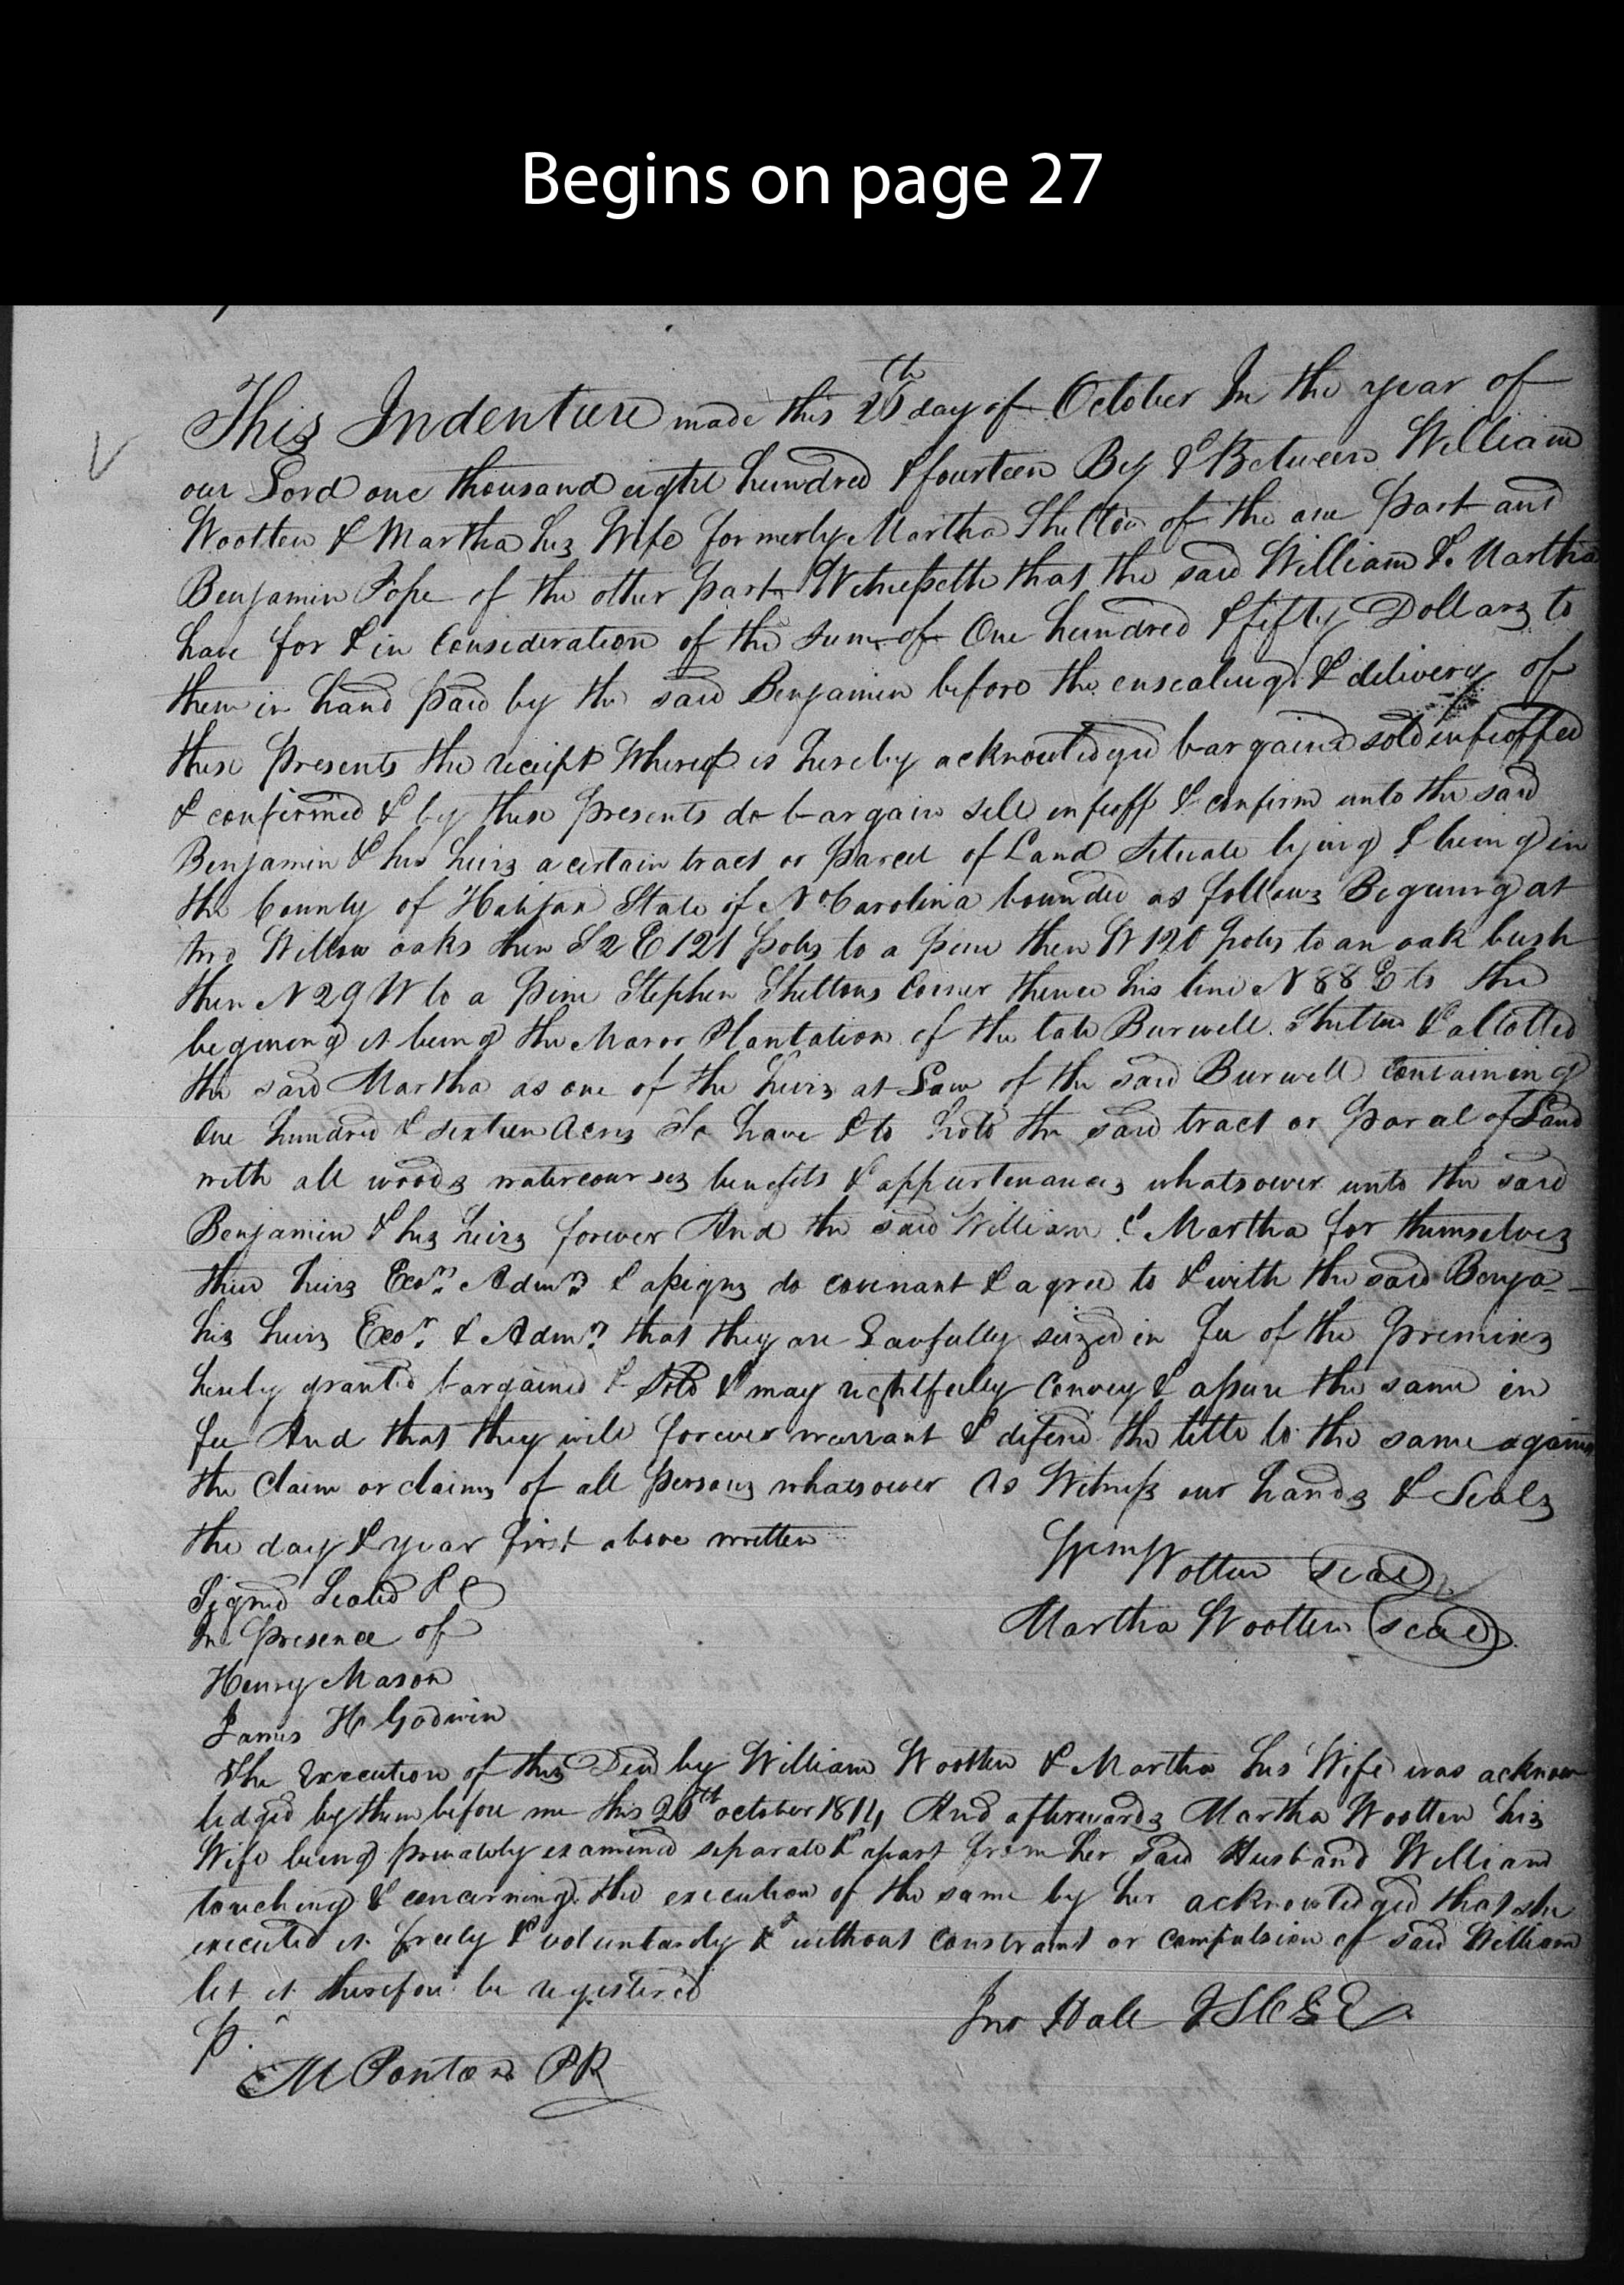 Begins on page 27
This Indenture made this 26th day of October In the year of
our Lord one thousand eight hundred & fourteen By & Between William
Wootten & Martha his Wife formerly Martha Shelton of the one part and
Benjamin Pope of the other part Witnesseth that the said William & Martha
have for & in Consideration of the sum of One hundred & fifty Dollars to
them in hand paid by the said Benjamin before the ensealing & delivery of
these presents the receipt Whereof is hereby acknowledged bargained sold enfeoffed
& confirmed & by these presents do bargain sell enfeoff & confirm unto the said
Benjamin & his heirs a certain tract or parcel of Land Situate lying & being in
the County of Halifax State of No Carolina bounded as follows Begining at
two Willow oaks then S 2 E 121 poles to a pine then W 120 poles to an oak bush
then N 29 W to a pine Stephen Sheltons Corner thence his line N 88 E to the
begining it being the Manor Plantation of the late Burwell Shelton & allotted
the said Martha as one of the heirs at Law of the said Burwell Containing
One hundred & sixteen Acres To have & to hold the said tract or parcel of Land
with all woods watercourses benefits & appurtenances whatsoever unto the said
Benjamin & his heirs forever And the said William & Martha for themselves
their heirs Exors. Admrs & assigns do covenant & agree to & with the said Benja-
his heirs Exor. & Admr. that they are Lawfully seized in fee of the premises
hereby granted bargained & Sold & may rightfully Convey & assure the same in
fee And that they will forever warrant & defend the title to the same against
the Claim or claims of all persons whatsoever As Witness our hands & Seals
the day & year first above written
Signed Sealed &c
In presence of
Henry Mason
James H Godwin
Wm Wotten seal
Martha Wootten seal
The Execution of this Deed by William Wootten & Martha his Wife was acknow
ledged by them before me this 26th october 1814 And afterwards Martha Wootten his
Wife being privately examined separate & apart from her said Husband William
touching & concerning the execution of the same by her acknowledged that she
executed it freely & voluntarily & without constraint or compulsion of said William
let it therefore be registered
Jno Hall JSCLE
P.
M Ponton PR